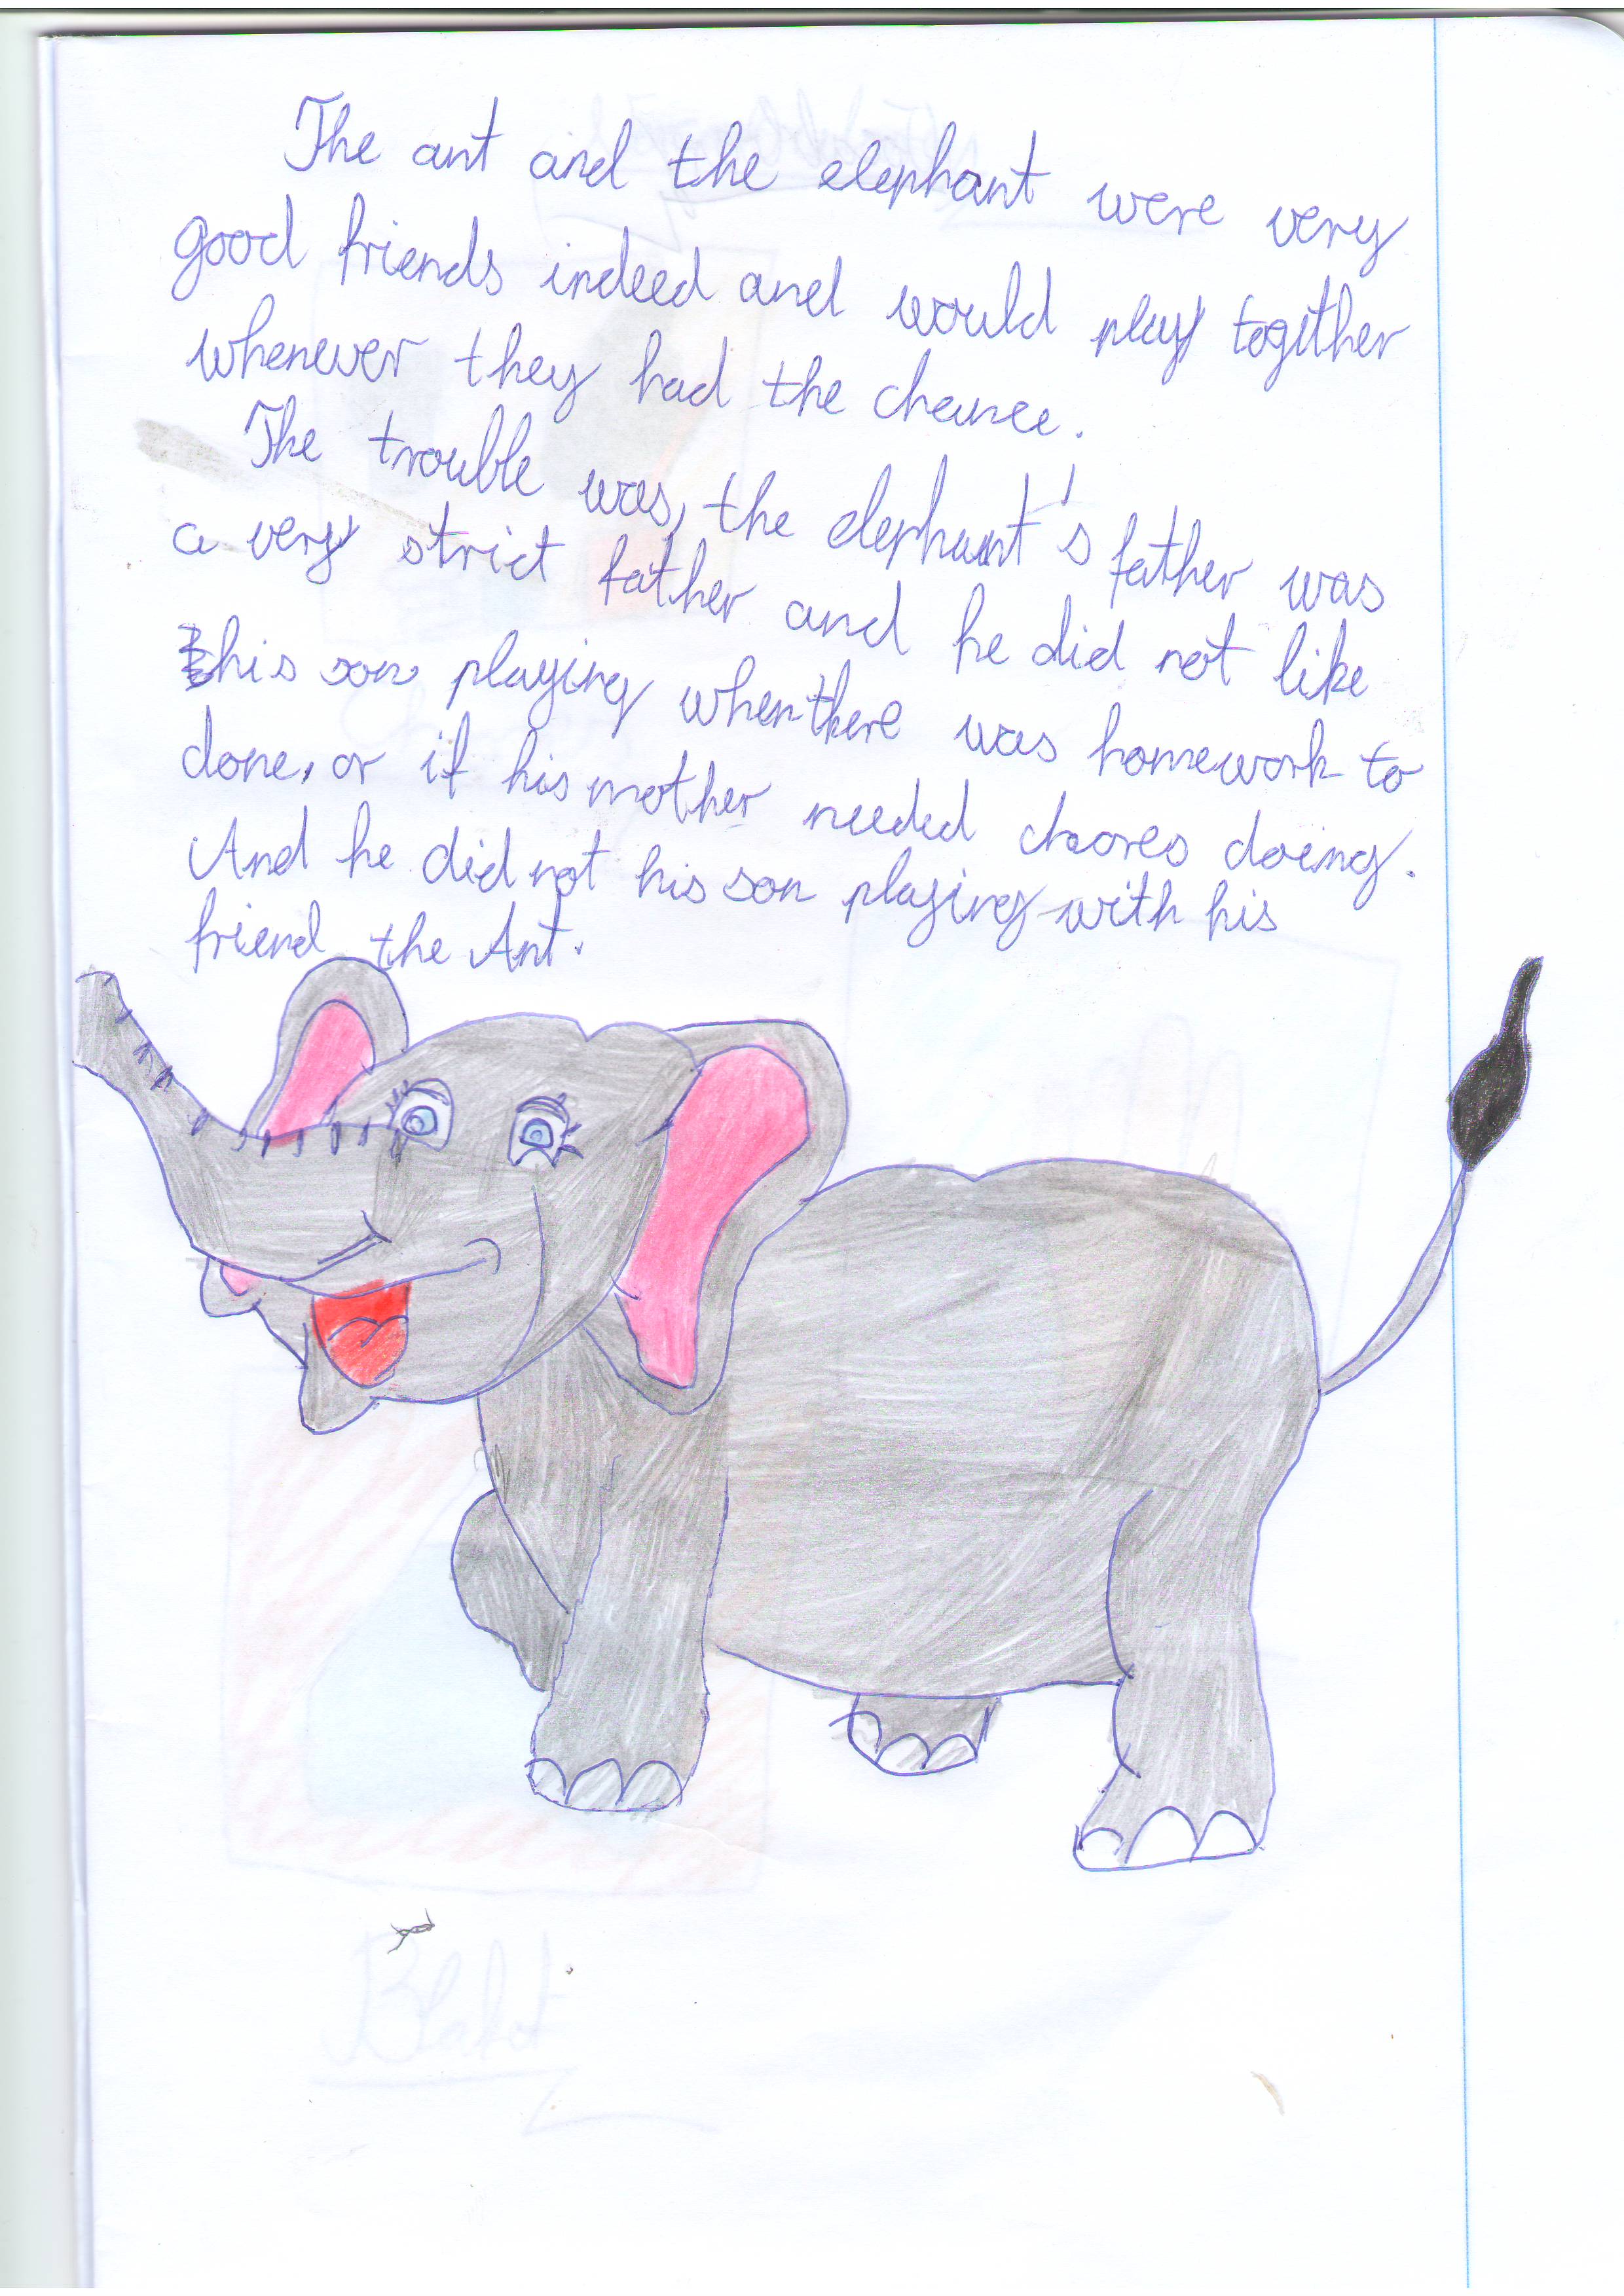 The ant and the elephant were very
good friends indeed and would play together
whenever they had the chance.
The trouble was, the elephant's father was
a very strict father and he did not like
his son playing when there was homework to
done, or if his mother needed chores doing.
And he did not his son playing with his
friend the Ant.